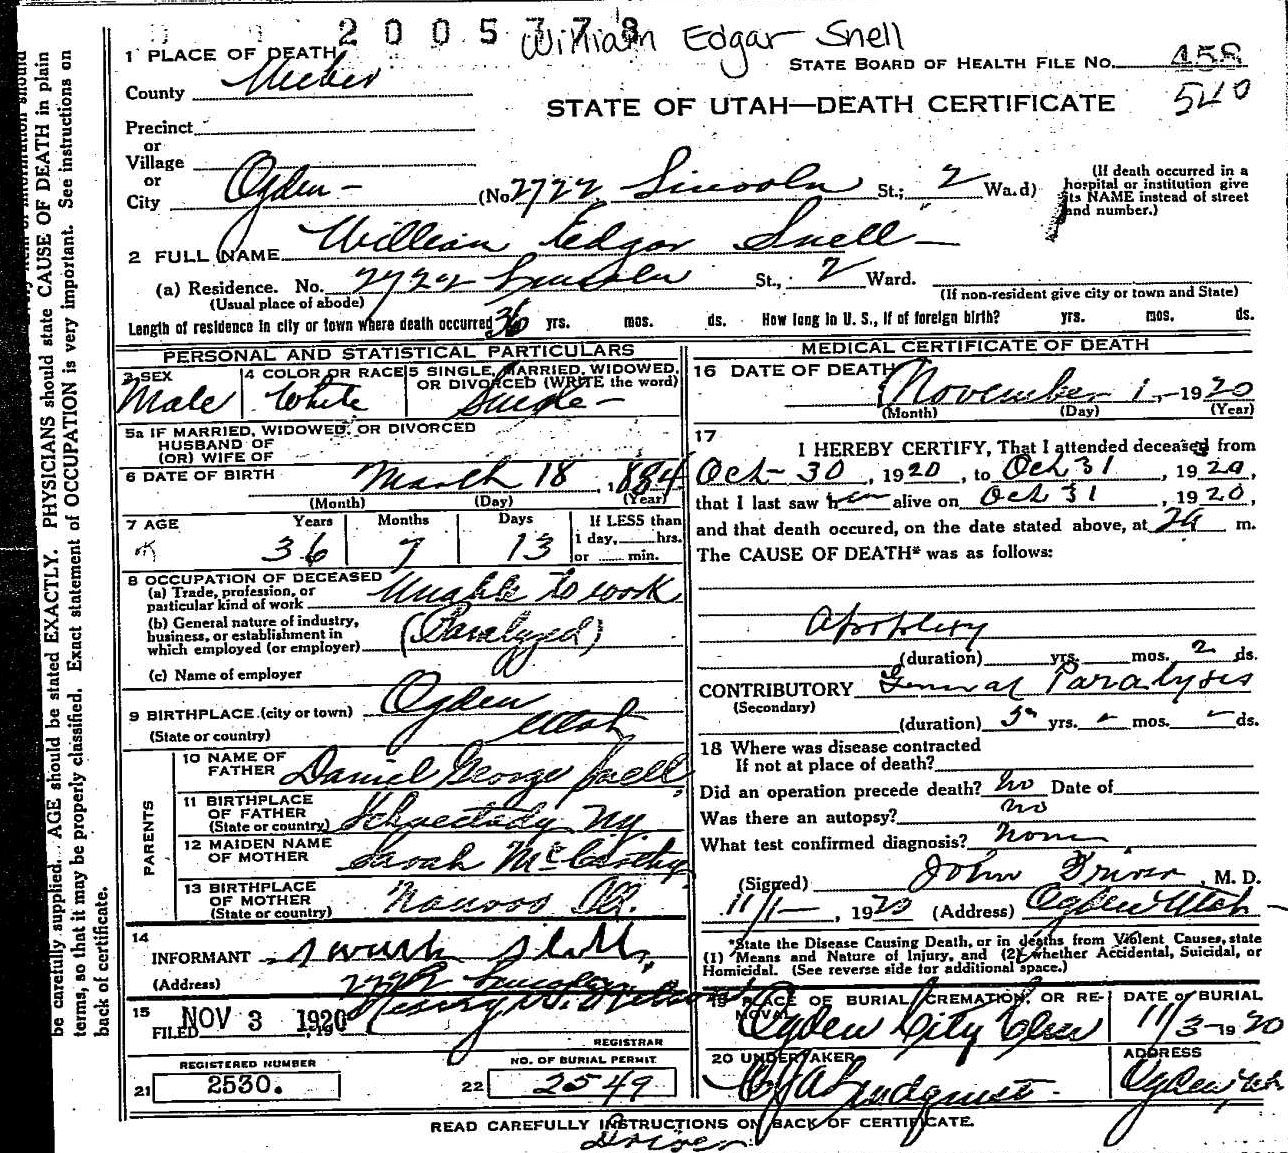 2005778 William Edgar Snell
1 PLACE OF DEATH
STATE BOARD OF HEALTH FILE NO. 458
County Weber
STATE OF UTAH—DEATH CERTIFICATE 540
Precinct
or
Village
or
City Ogden — (No 2722 Lincoln St.; 2 Wa.d)
(If death occurred in a
hospital or institution give
its NAME instead of street
and number.)
2 FULL NAME William Edgar Snell —
(a) Residence. No. 2722 Lincoln St., 2 Ward.
(Usual place of abode)
(If non-resident give city or town and State)
Length of residence in city or town where death occurred 36 yrs. mos. ds. How long in U. S., if of foreign birth? yrs. mos. ds.
PERSONAL AND STATISTICAL PARTICULARS
3 SEX
Male
4 COLOR OR RACE
White
5 SINGLE, MARRIED, WIDOWED,
OR DIVORCED (WRITE the word)
Single —
5a IF MARRIED, WIDOWED, OR DIVORCED
HUSBAND OF
(OR) WIFE OF
6 DATE OF BIRTH March 18, 1884
(Month) (Day) (Year)
7 AGE
Years Months Days
36 7 13
If LESS than
1 day, hrs.
or min.
8 OCCUPATION OF DECEASED
(a) Trade, profession, or
particular kind of work Unable to work
(b) General nature of industry,
business, or establishment in
which employed (or employer) (Paralyzed)
(c) Name of employer
9 BIRTHPLACE (city or town) Ogden
(State or country) Utah
PARENTS
10 NAME OF
FATHER Daniel George Snell
11 BIRTHPLACE
OF FATHER
(State or country) Schnectady N.y.
12 MAIDEN NAME
OF MOTHER Sarah McCarthy
13 BIRTHPLACE
OF MOTHER
(State or country) Nauvoo Ill.
14
INFORMANT
(Address) 2722 Lincoln
15
FILED NOV 3 1920, 19
REGISTRAR
REGISTERED NUMBER
21 2530.
NO. OF BURIAL PERMIT
22 2549
MEDICAL CERTIFICATE OF DEATH
16 DATE OF DEATH
November 1 — 1920
(Month) (Day) (Year)
17
I HEREBY CERTIFY, That I attended deceased from
Oct- 30, 1920, to Oct 31, 1920,
that I last saw him alive on Oct 31, 1920,
and that death occured, on the date stated above, at 2a m.
The CAUSE OF DEATH* was as follows:
Apoplexy
(duration) yrs. mos. 2 ds.
CONTRIBUTORY General Paralysis
(Secondary)
(duration) yrs. - mos. - ds.
18 Where was disease contracted
If not at place of death?
Did an operation precede death? no Date of
Was there an autopsy? no
What test confirmed diagnosis? None
(Signed) John Driver, M. D.
11/1—, 1920 (Address) Ogden Utah —
*State the Disease Causing Death, or in deaths from Violent Causes, state
(1) Means and Nature of Injury, and (2) whether Accidental, Suicidal, or
Homicidal. (See reverse side for additional space.)
19 PLACE OF BURIAL, CREMATION, OR RE-
MOVAL
Ogden City
DATE of BURIAL
11/3—1920
20 UNDERTAKER
Lindquist
ADDRESS
Ogden, Utah
READ CAREFULLY INSTRUCTIONS ON BACK OF CERTIFICATE.
Driver
be carefully supplied. AGE should be stated EXACTLY. PHYSICIANS should state CAUSE OF DEATH in plain
terms, so that it may be properly classified. Exact statement of OCCUPATION is very important. See instructions on
back of certificate.